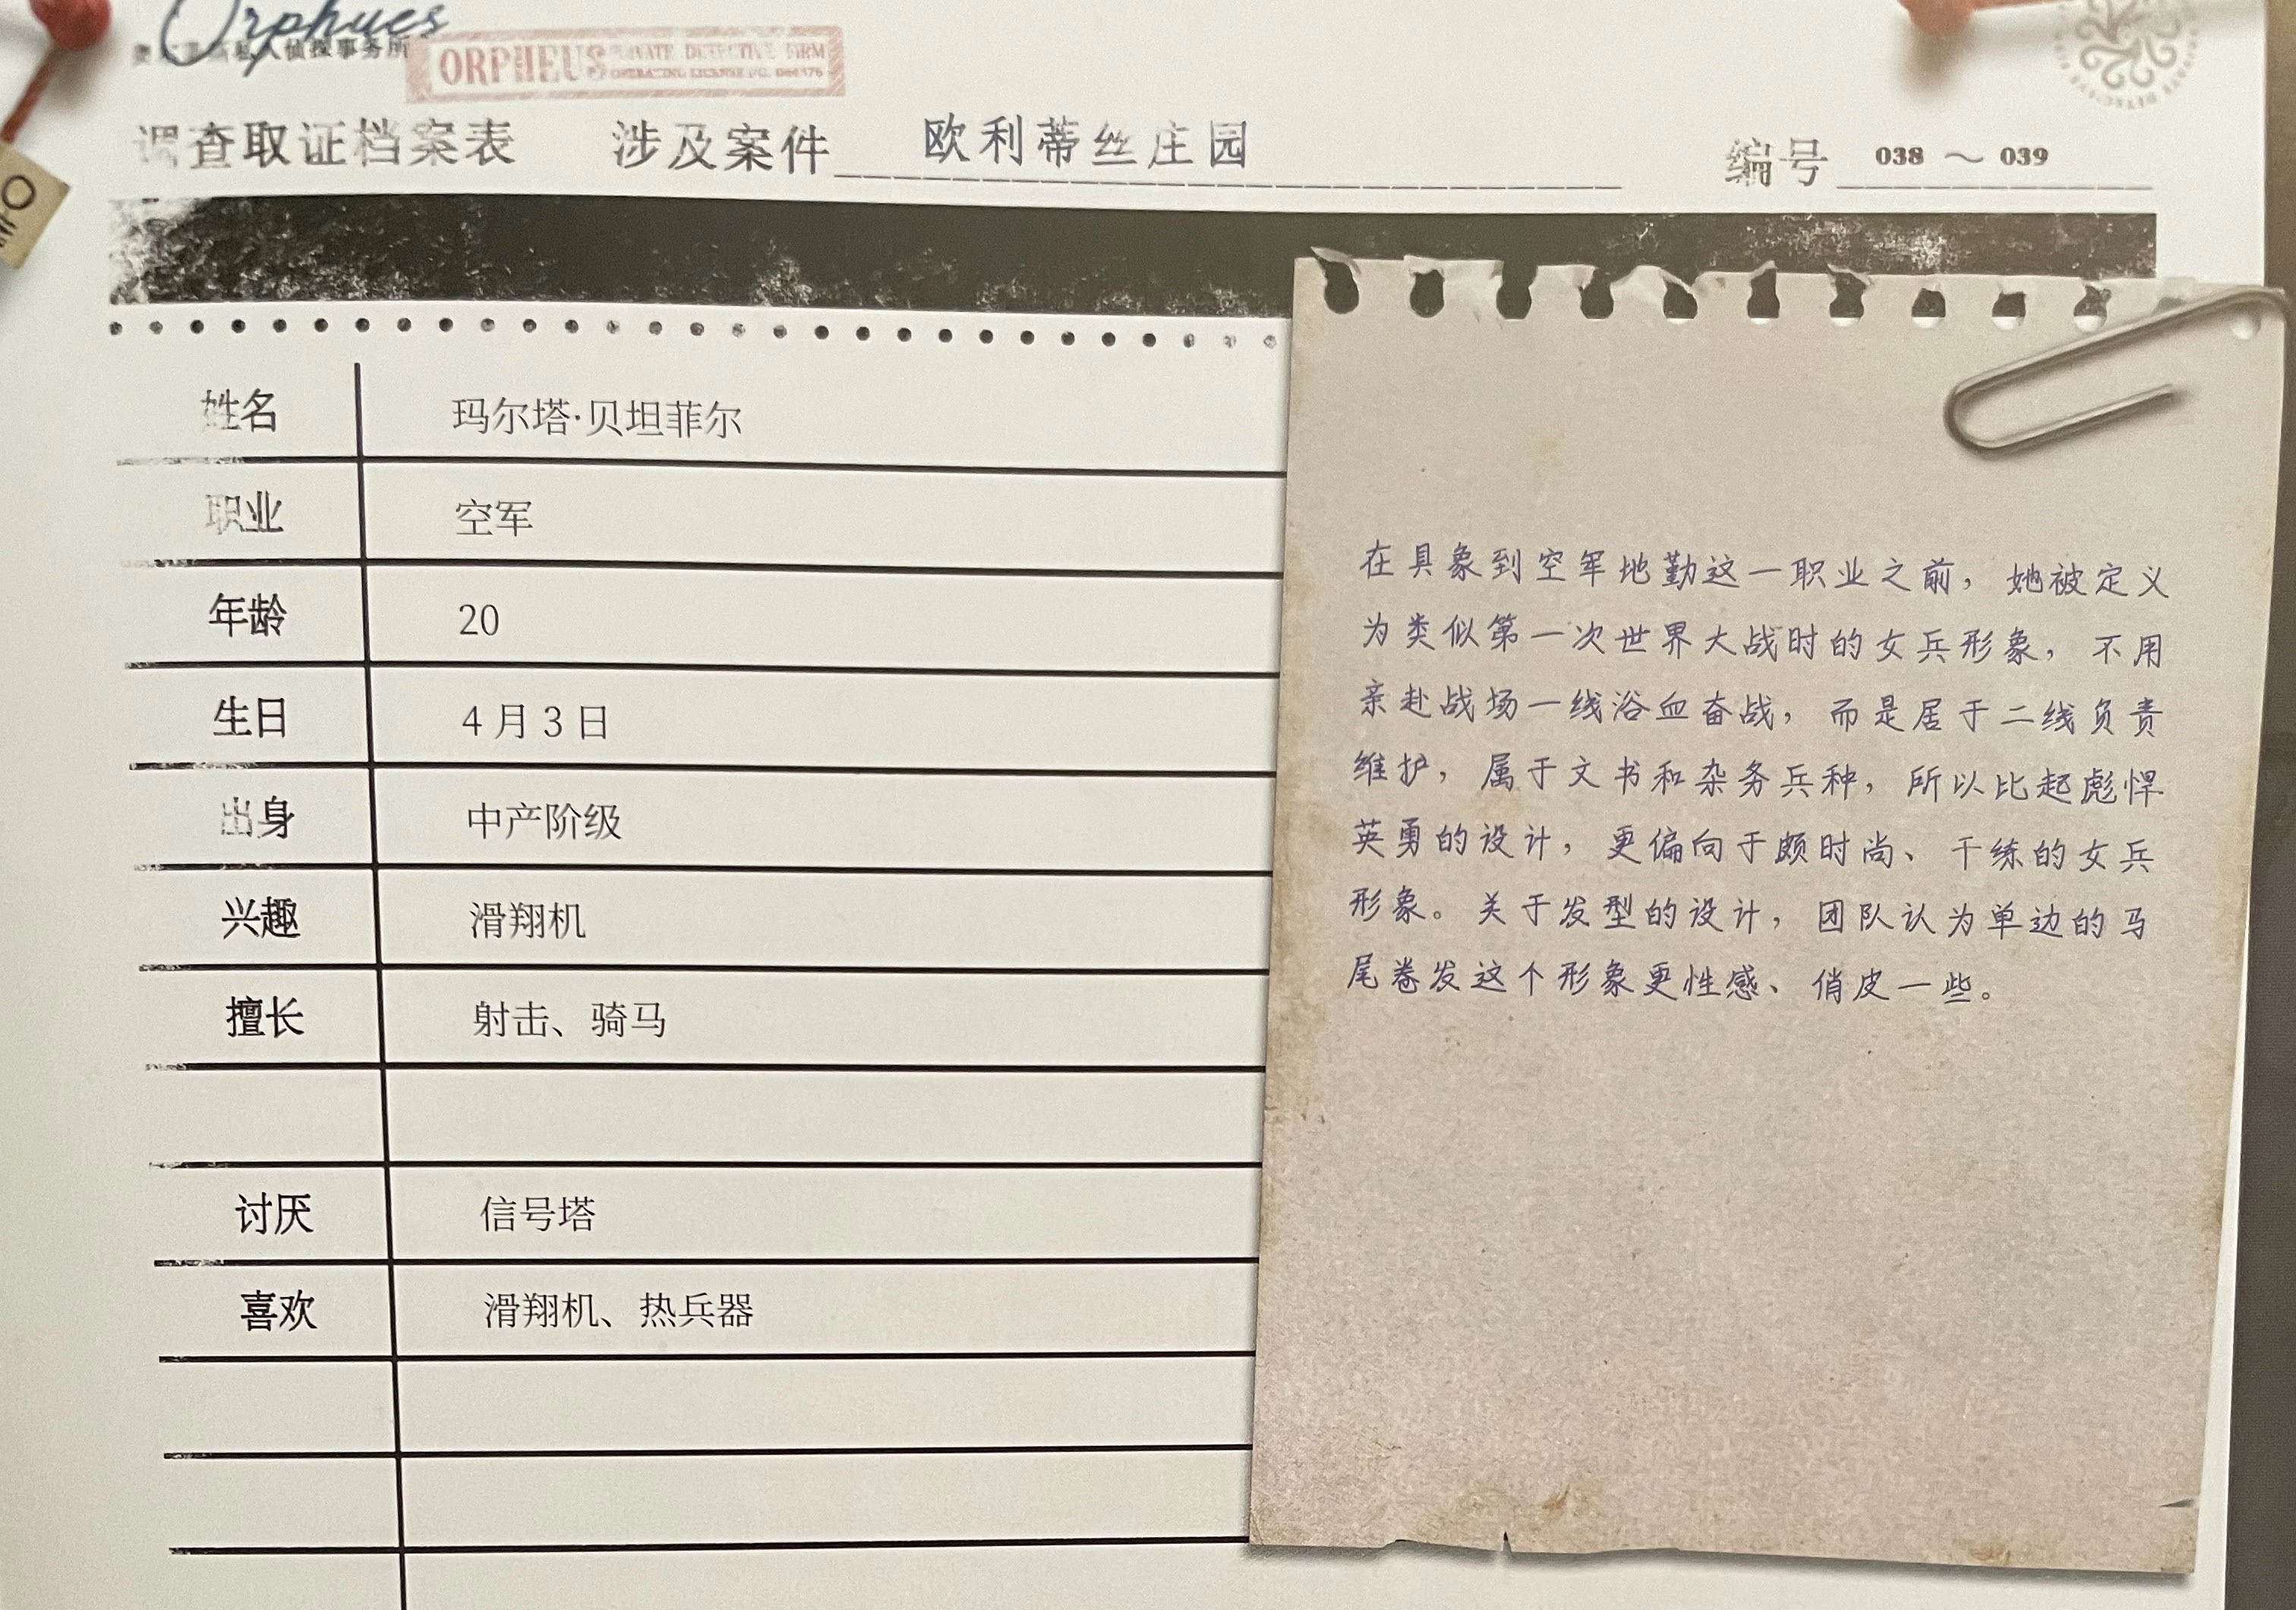 Orphues
私人侦探事务所
ORPHEUS PRIVATE DETECTIVE FIRM
OPERATING LICENSE NO.
调查取证档案表 涉及案件 欧利蒂丝庄园 编号 038 ~ 039
姓名 玛尔塔·贝坦菲尔
职业 空军
年龄 20
生日 4月3日
出身 中产阶级
兴趣 滑翔机
擅长 射击、骑马
讨厌 信号塔
喜欢 滑翔机、热兵器
在具象到空军地勤这一职业之前，她被定义
为类似第一次世界大战时的女兵形象，不用
亲赴战场一线浴血奋战，而是居于二线负责
维护，属于文书和杂务兵种，所以比起彪悍
英勇的设计，更偏向于颇时尚、干练的女兵
形象。关于发型的设计，团队认为单边的马
尾卷发这个形象更性感、俏皮一些。